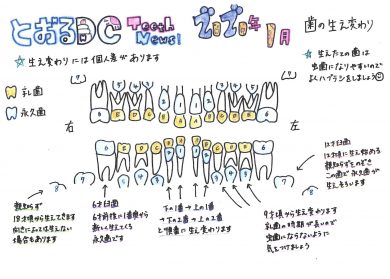 とおるDC Teeth News! 2020年1月 歯の生え変わり
☆生え変わりには個人差があります
☆生えたての歯は
虫歯になりやすいので
よくハブラシをしましょう
乳歯
永久歯
右
左
12才臼歯
12才頃に生え始め
親知らずをのぞき
この歯で永久歯が
生えそろいます
親知らず
18才頃から生えてきます
向きによっては生えない
場合もあります
6才臼歯
6才前後に1番奥から
新しく生えてくる
永久歯です
下の1番→上の1番
→下の2番→上の2番
と順番に生え変わります
9才頃から生え変わります
乳歯の時期が長いので
虫歯にならないように
気をつけましょう